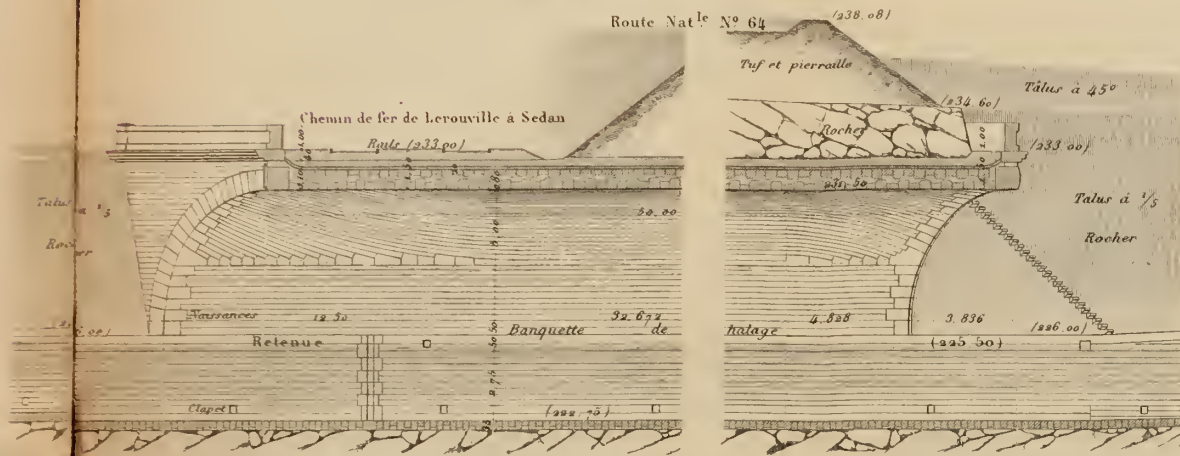 Route Nat.le No 64
(238.08)
Tuf et pierraille
Tâlus à 45°
(234.60)
Chemin de fer de Lerouville à Sedan
Rails (233.00)
Rocher
2.00
(233.00)
231.50
Talus à 1/5
Rocher
50.00
Talus
à 1/5
Rocher
Naissances
12.50
32.672
4.828
3.836
(226.00)
Retenue
Banquette de halage
(225.50)
2.75
Clapet
(222.75)